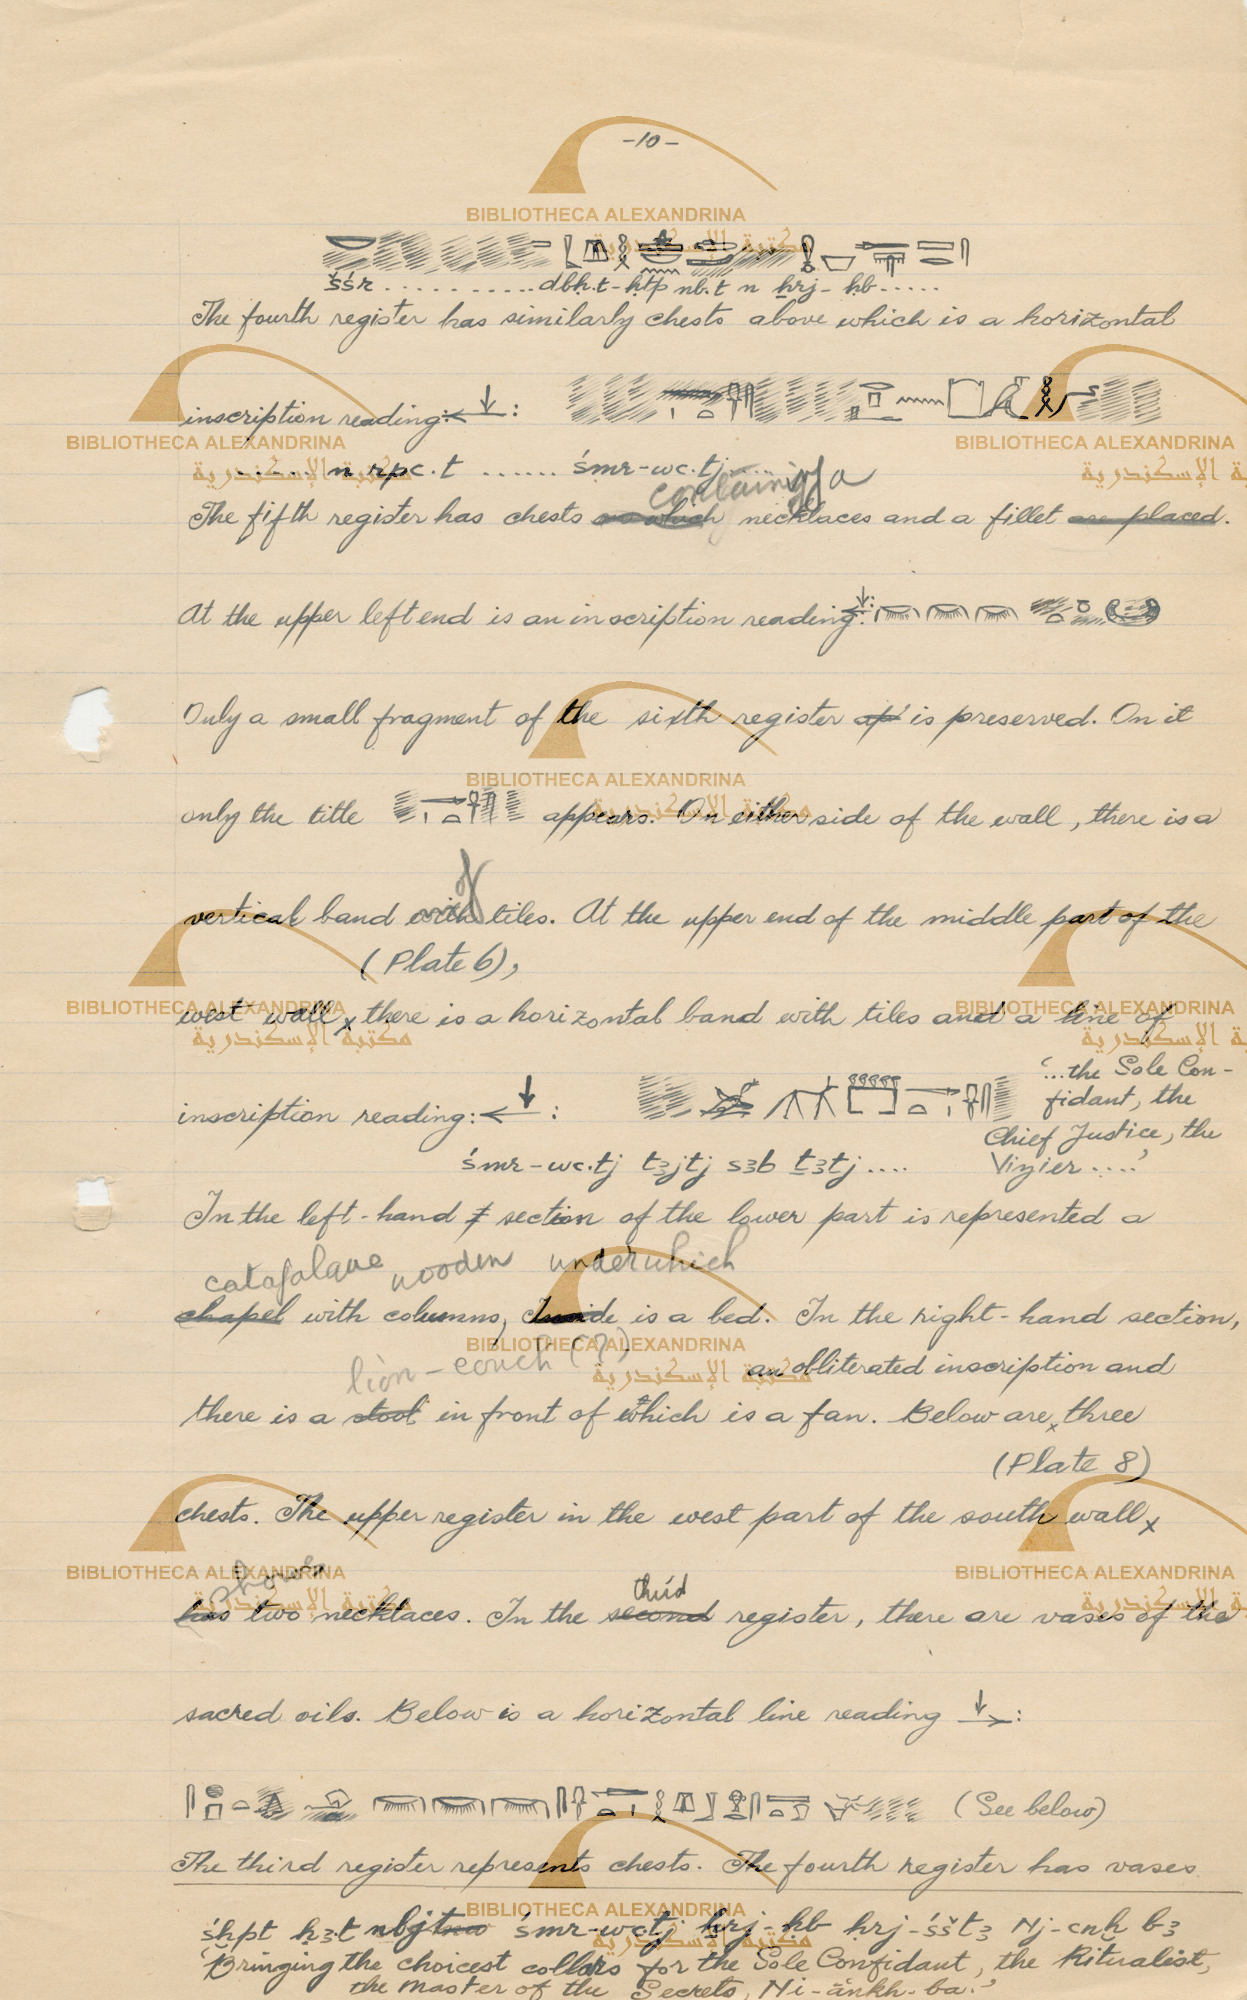 -10-
šśr ........... dbḥ.t-ḥtp nb.t n ẖrj-ḥb .....
The fourth register has similarly chests above which is a horizontal
inscription reading:
...... n rpc.t ...... śmr-wc.tj .....
containing a
The fifth register has chests on which necklaces and a fillet are placed.
At the upper left end is an inscription reading:
Only a small fragment of the sixth register is preserved. On it
only the title appears. On either side of the wall, there is a
of
vertical band with tiles. At the upper end of the middle part of the
(Plate 6),
west wall x there is a horizontal band with tiles and a line of
inscription reading: :
'...the Sole Con-
fidant, the
Chief Justice, the
Vizier ....'
śmr-wc.tj tꜣjtj sꜣb ṯꜣtj ....
In the left-hand section of the lower part is represented a
catafalque wooden under which
chapel with columns, Inside is a bed. In the right-hand section,
lion-couch (?)
an obliterated inscription and
there is a stool in front of which is a fan. Below are x three
(Plate 8)
chests. The upper register in the west part of the south wall x
shows
has two necklaces. In the second register, there are vases of the
third
sacred oils. Below is a horizontal line reading :
(See below)
The third register represents chests. The fourth register has vases
śḫpt ḥꜣ.t nbj śmr-wc.tj ẖrj-ḥb ḥrj-śštꜣ Nj-cnḫ bꜣ
'Bringing the choicest collars for the Sole Confidant, the Ritualist,
the Master of the Secrets, Ni-ānkh-ba.'
BIBLIOTHECA ALEXANDRINA
مكتبة الإسكندرية